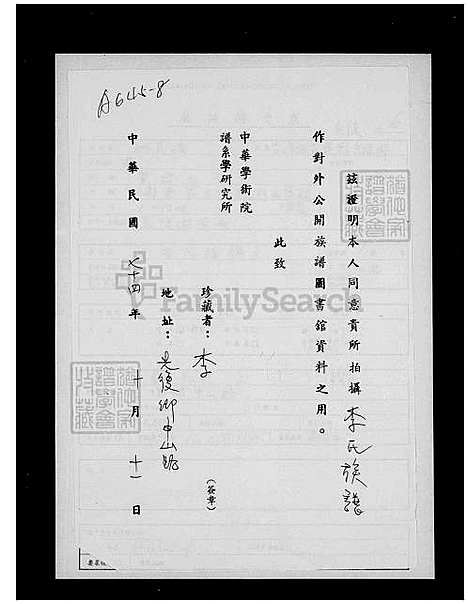 A645-8
茲證明本人同意貴所拍攝李氏族譜
作對外公開族譜圖書館資料之用。
此致
中華學術院
譜系學研究所
珍藏者：李
（簽章）
地址：光復鄉中山路
中華民國七十四年十月十一日
FamilySearch